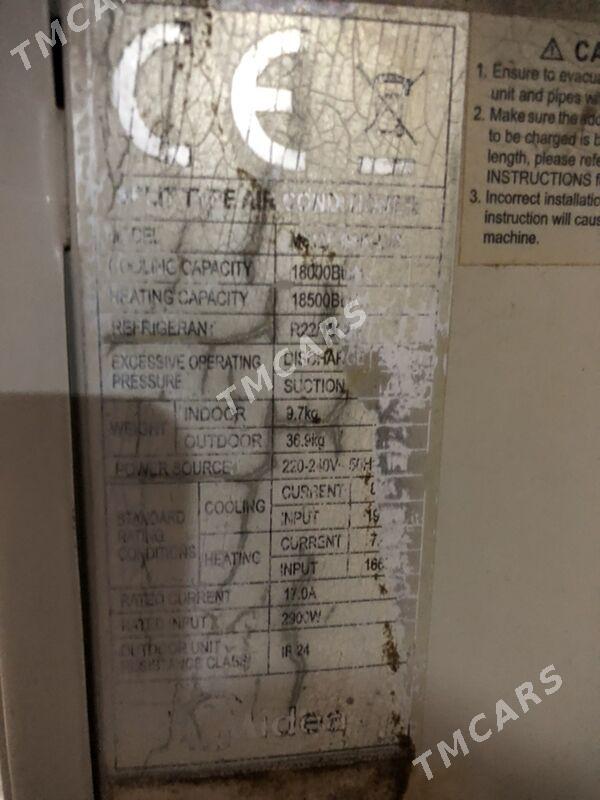 CE
SPLIT TYPE AIR CONDITIONER
MODEL
COOLING CAPACITY 18000B
HEATING CAPACITY 18500B
REFRIGERANT R22
EXCESSIVE OPERATING PRESSURE DISCHARGE
SUCTION
WEIGHT INDOOR 9.7kg
OUTDOOR 36.9kg
POWER SOURCE 220-240V~ 50H
STANDARD RATING CONDITIONS COOLING CURRENT
INPUT 19
HEATING CURRENT 7.
INPUT 166
RATED CURRENT 17.0A
RATED INPUT 2900W
OUTDOOR UNIT RESISTANCE CLASS IP 24
Midea
CA
1. Ensure to evacua
unit and pipes wi
2. Make sure the
to be charged is b
length, please refe
INSTRUCTIONS f
3. Incorrect installatio
instruction will caus
machine.
TMCARS
TMCARS
TMCARS
TMCARS